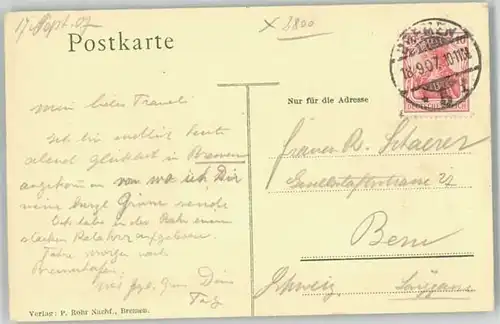 17. Sept. 07
x 8800
Postkarte
BREMEN
18.9.07. 10-11V.
DEUTSCHES REICH
Nur für die Adresse
mein liebes
Ich bin endlich heute
abend glücklich in Bremen
angekommen von wo ich Dir
meine herzl. Grüsse sende
Ich habe in der Bahn einen
starken aufgelesen.
Fahre morgen nach
Bremerhafen.
Dein
Frauen A. Scheerer
22
Bern
Schweiz,
Verlag: P. Rohr Nachf., Bremen.